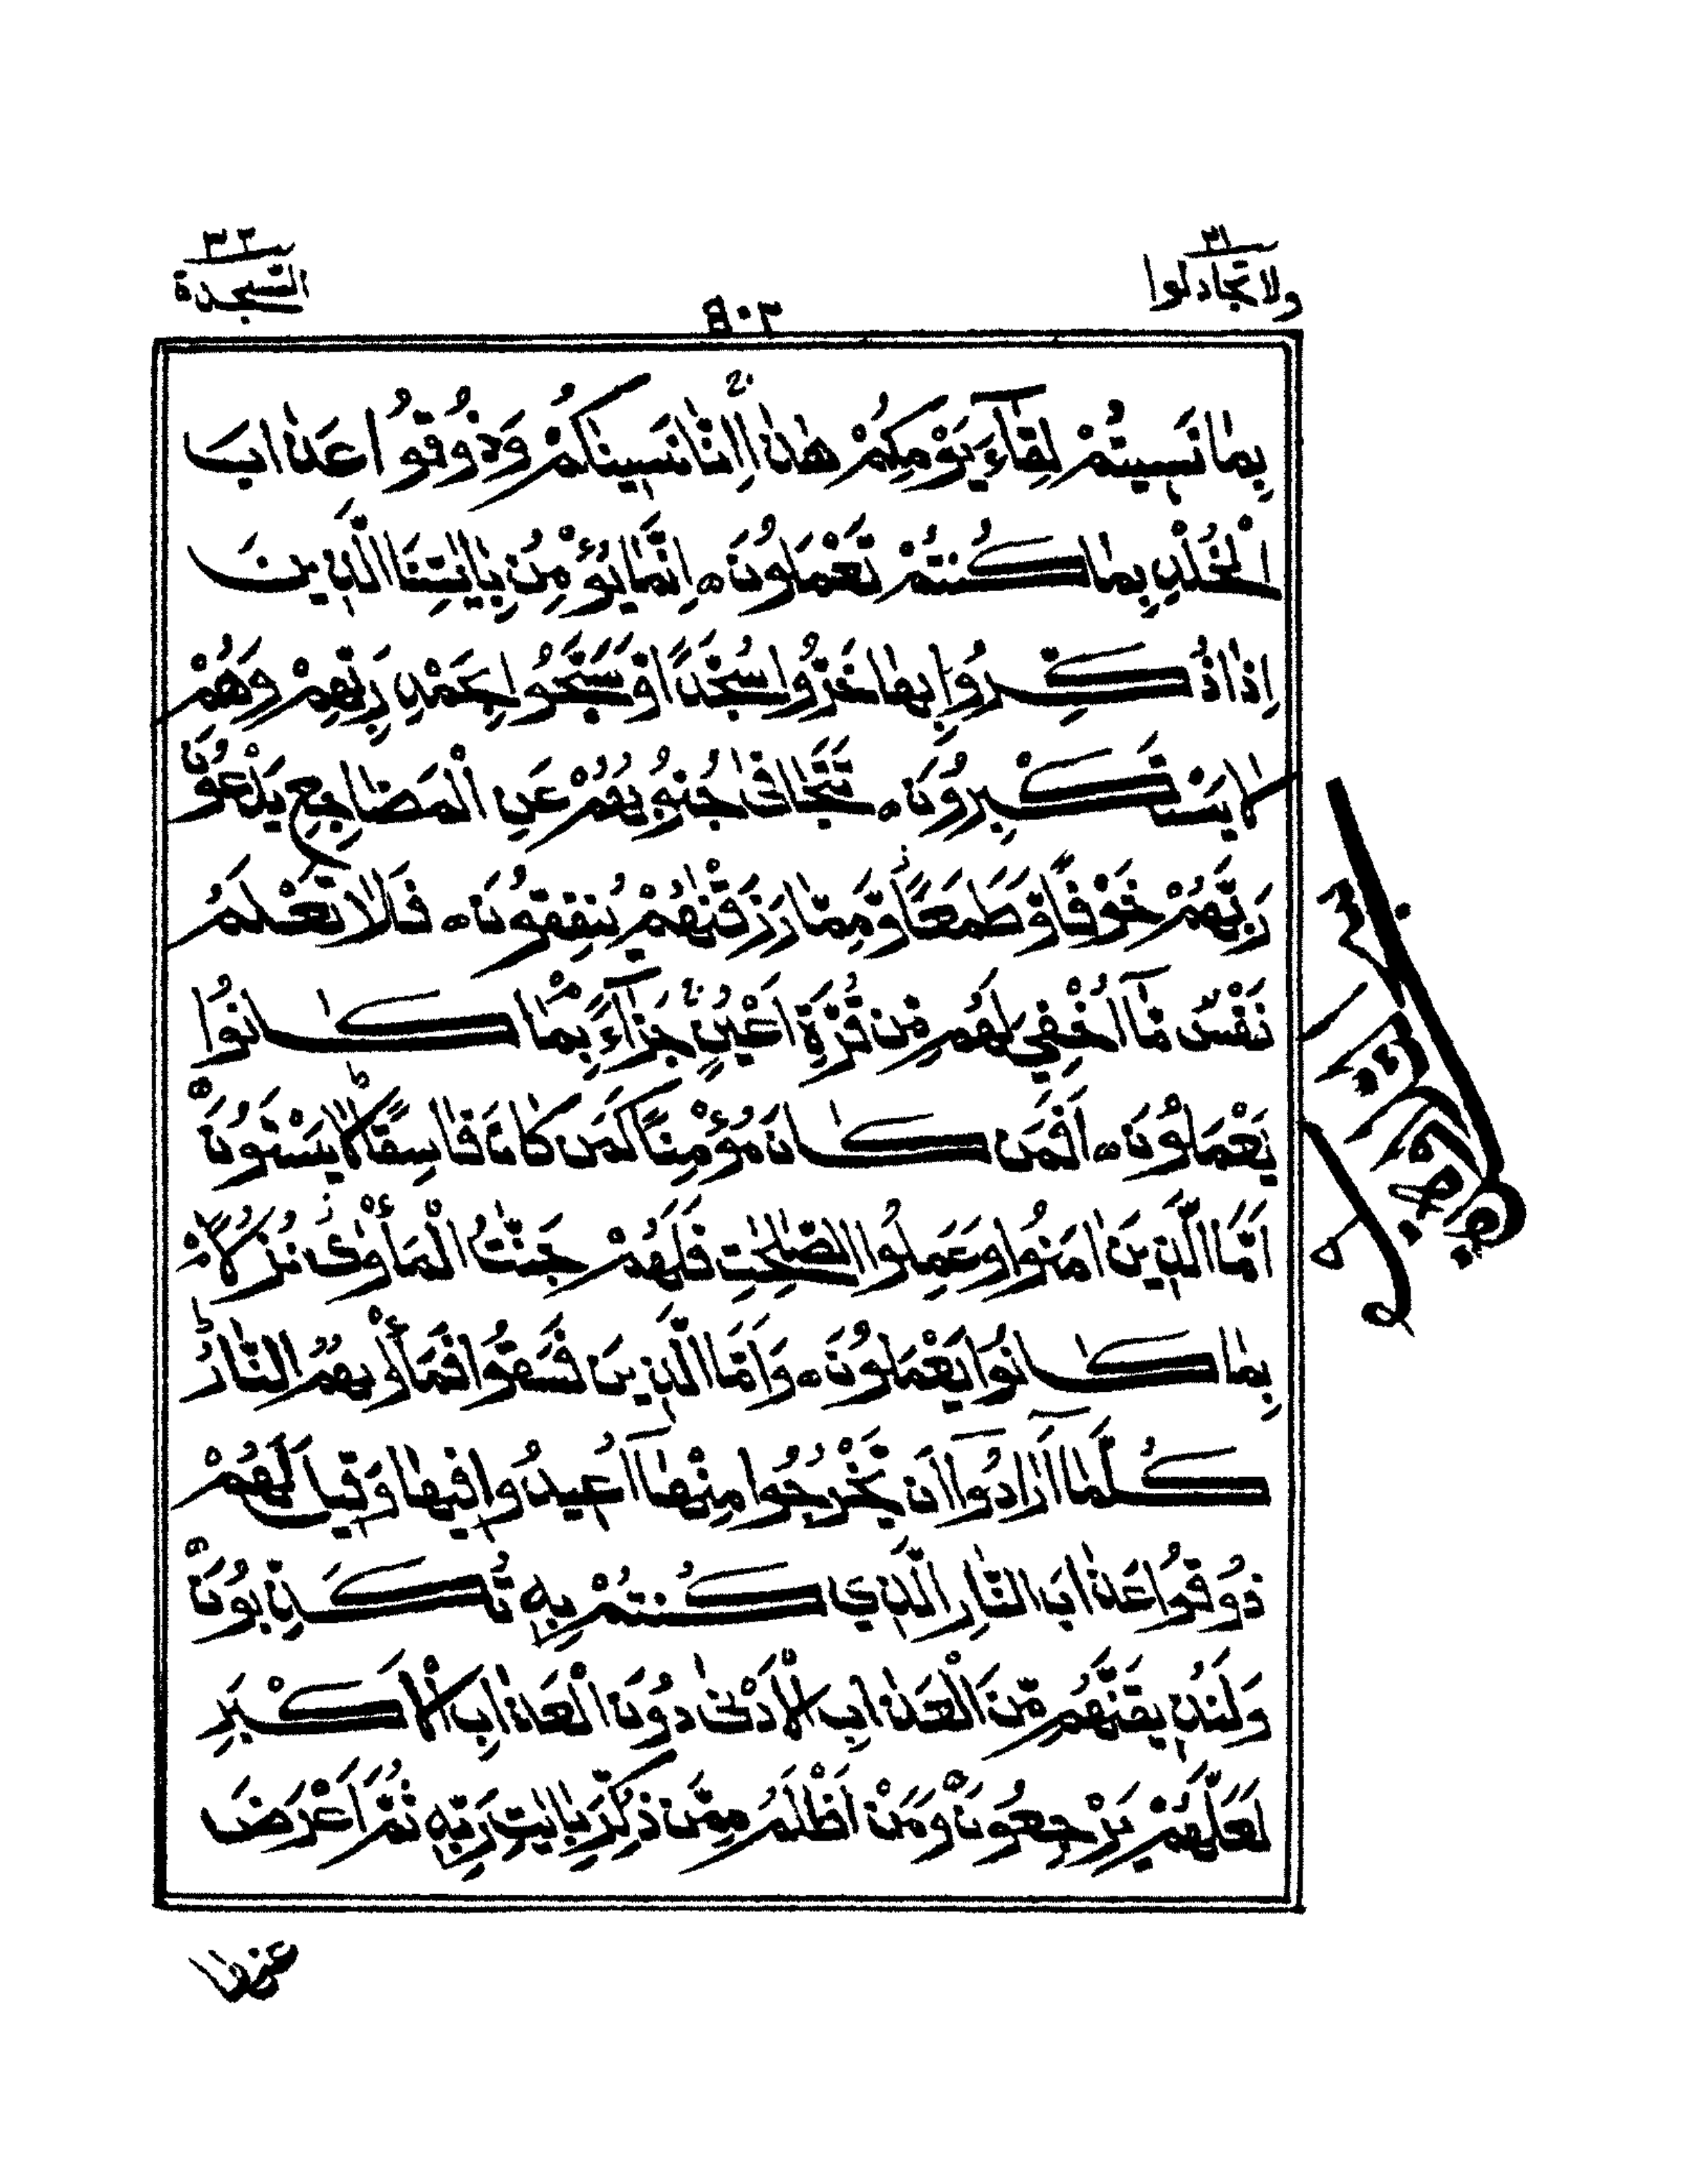 ٢١
ولا تجادلوا
٣٢
السجدة
بِمَا نَسِيتُمْ لِقَآءَ يَوْمِكُمْ هٰذَا اِنَّا نَسِينٰكُمْ وَذُوقُوا عَذَابَ
الْخُلْدِ بِمَا كُنتُمْ تَعْمَلُونَ ۝ اِنَّمَا يُؤْمِنُ بِاٰيٰتِنَا الَّذِينَ
اِذَا ذُكِّرُوا بِهَا خَرُّوا سُجَّدًا وَّسَبَّحُوا بِحَمْدِ رَبِّهِمْ وَهُمْ
لَا يَسْتَكْبِرُونَ ۝ تَتَجَافٰى جُنُوبُهُمْ عَنِ الْمَضَاجِعِ يَدْعُونَ
رَبَّهُمْ خَوْفًا وَّطَمَعًا وَّمِمَّا رَزَقْنٰهُمْ يُنفِقُونَ ۝ فَلَا تَعْلَمُ
نَفْسٌ مَّآ اُخْفِيَ لَهُم مِّن قُرَّةِ اَعْيُنٍ جَزَآءً بِمَا كَانُوا
يَعْمَلُونَ ۝ اَفَمَن كَانَ مُؤْمِنًا كَمَن كَانَ فَاسِقًا لَّا يَسْتَوُونَ
اَمَّا الَّذِينَ اٰمَنُوا وَعَمِلُوا الصّٰلِحٰتِ فَلَهُمْ جَنّٰتُ الْمَأْوٰى نُزُلًا
بِمَا كَانُوا يَعْمَلُونَ ۝ وَاَمَّا الَّذِينَ فَسَقُوا فَمَأْوٰىهُمُ النَّارُ
كُلَّمَآ اَرَادُوٓا اَن يَّخْرُجُوا مِنْهَآ اُعِيدُوا فِيهَا وَقِيلَ لَهُمْ
ذُوقُوا عَذَابَ النَّارِ الَّذِي كُنتُمْ بِهٖ تُكَذِّبُونَ
وَلَنُذِيقَنَّهُم مِّنَ الْعَذَابِ الْاَدْنٰى دُونَ الْعَذَابِ الْاَكْبَرِ
لَعَلَّهُمْ يَرْجِعُونَ وَمَنْ اَظْلَمُ مِمَّن ذُكِّرَ بِاٰيٰتِ رَبِّهٖ ثُمَّ اَعْرَضَ
عنها